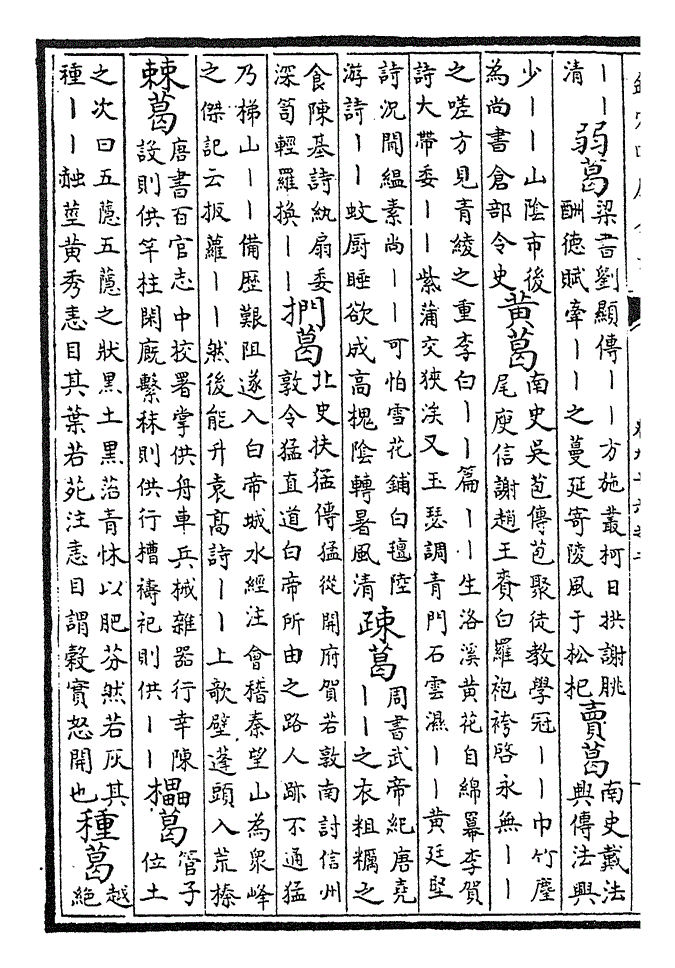 丨丨
清
弱葛
梁書劉顯傳丨丨方施叢柯日拱謝朓
酬德賦牽丨丨之蔓延寄陵風于松杞
賣葛
南史戴法
興傳法興
少丨丨山陰市後
為尚書倉部令史
黃葛
南史吳苞傳苞聚徒教學冠丨丨巾竹麈
尾庾信謝趙王賚白羅袍袴啓永無丨丨
之嗟方見青綾之重李白丨丨篇丨丨生洛溪黃花自綿羃李賀
詩大帶委丨丨紫蒲交狹涘又玉瑟調青門石雲濕丨丨黃廷堅
詩況閒緼素尚丨丨可怕雪花鋪白氊陸
游詩丨丨蚊厨睡欲成高槐陰轉暑風清
疎葛
周書武帝紀唐堯
丨丨之衣粗糲之
食陳基詩紈扇委
深笥輕羅換丨丨
捫葛
北史扶猛傳猛從開府賀若敦南討信州
敦令猛直道白帝所由之路人跡不通猛
乃梯山丨丨備歷艱阻遂入白帝城水經注會稽秦望山為衆峰
之傑記云扳蘿丨丨然後能升袁高詩丨丨上歌壁蓬頭入荒榛
棘葛
唐書百官志中校署掌供舟車兵械雜器行幸陳
設則供竿柱閑廐繫秣則供行槽禱祀則供丨丨
櫑葛
管子
位土
之次曰五蔭五蔭之狀黑土黑菭青怵以肥芬然若灰其
種丨丨赨莖黃秀恚目其葉若苑注恚目謂穀實怒開也
種葛
越
絕